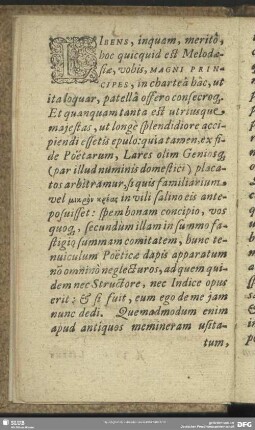 LIBENS, inquam, meritò,
hoc quicquid est Melodæ-
siæ, vobis, MAGNI PRIN-
CIPES, in charteâ hâc, ut
ita loquar, patellâ offero consecroq́;.
Et quanquam tanta est utriusque
majestas, ut longè splendidiore acci-
piendi essetis epulo: quia tamen, ex fi-
de Poëtarum, Lares olim Geniosq́;
(par illud numinis domestici) placa-
tos arbitramur, si quis familiarium
vel μικρὸν κρέας in vili salino eis ante-
posuisset: spem bonam concipio, vos
quoq́;, secundum illam in summo fa-
stigio summam comitatem, hunc te-
nuiculum Poëticæ dapis apparatum
nō omninò neglecturos, ad quem qui-
dem nec Structore, nec Indice opus
erit: & si fuit, eum ego de me jam
nunc dedi. Quemadmodum enim
apud antiquos memineram usita-
tum,
SLUB
DFG